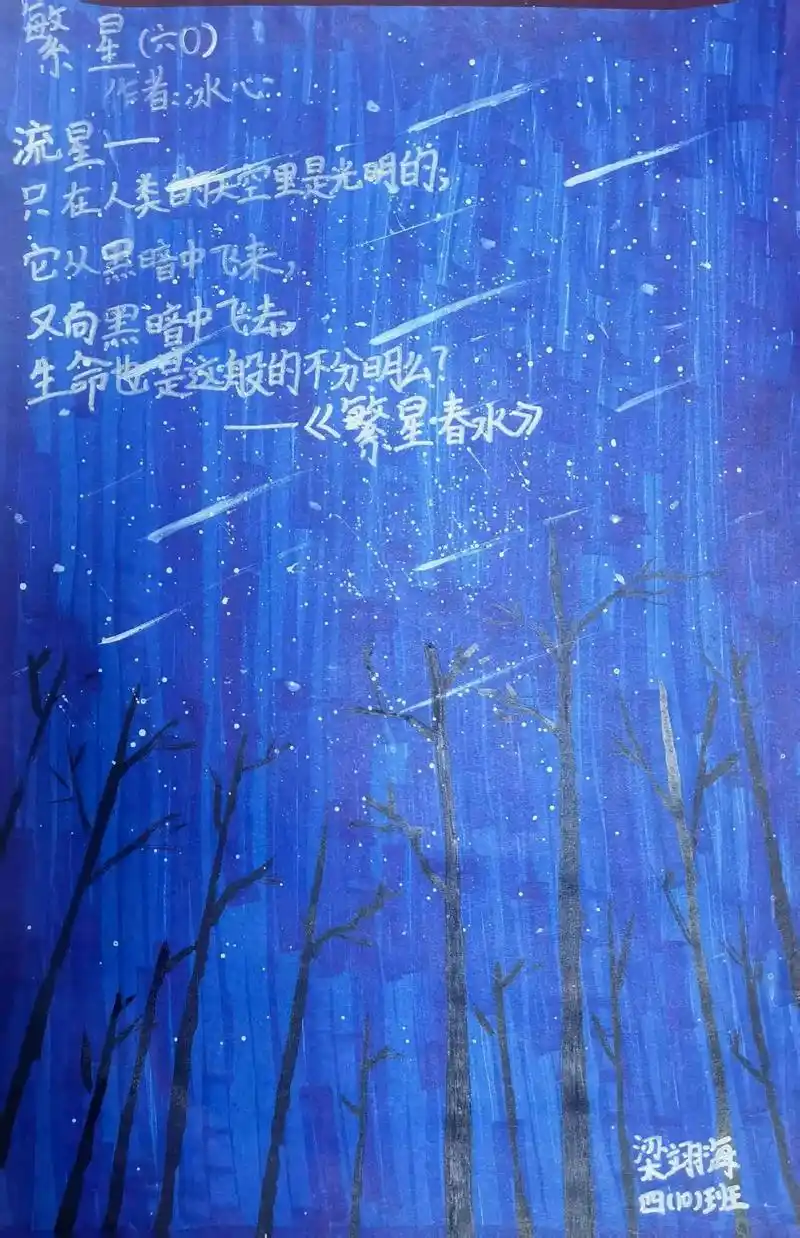 繁星(六0)
作者:冰心
流星—
只在人类的天空里是光明的;
它从黑暗中飞来,
又向黑暗中飞去,
生命也是这般的不分明么?
——《繁星·春水》
梁翊海
四(10)班